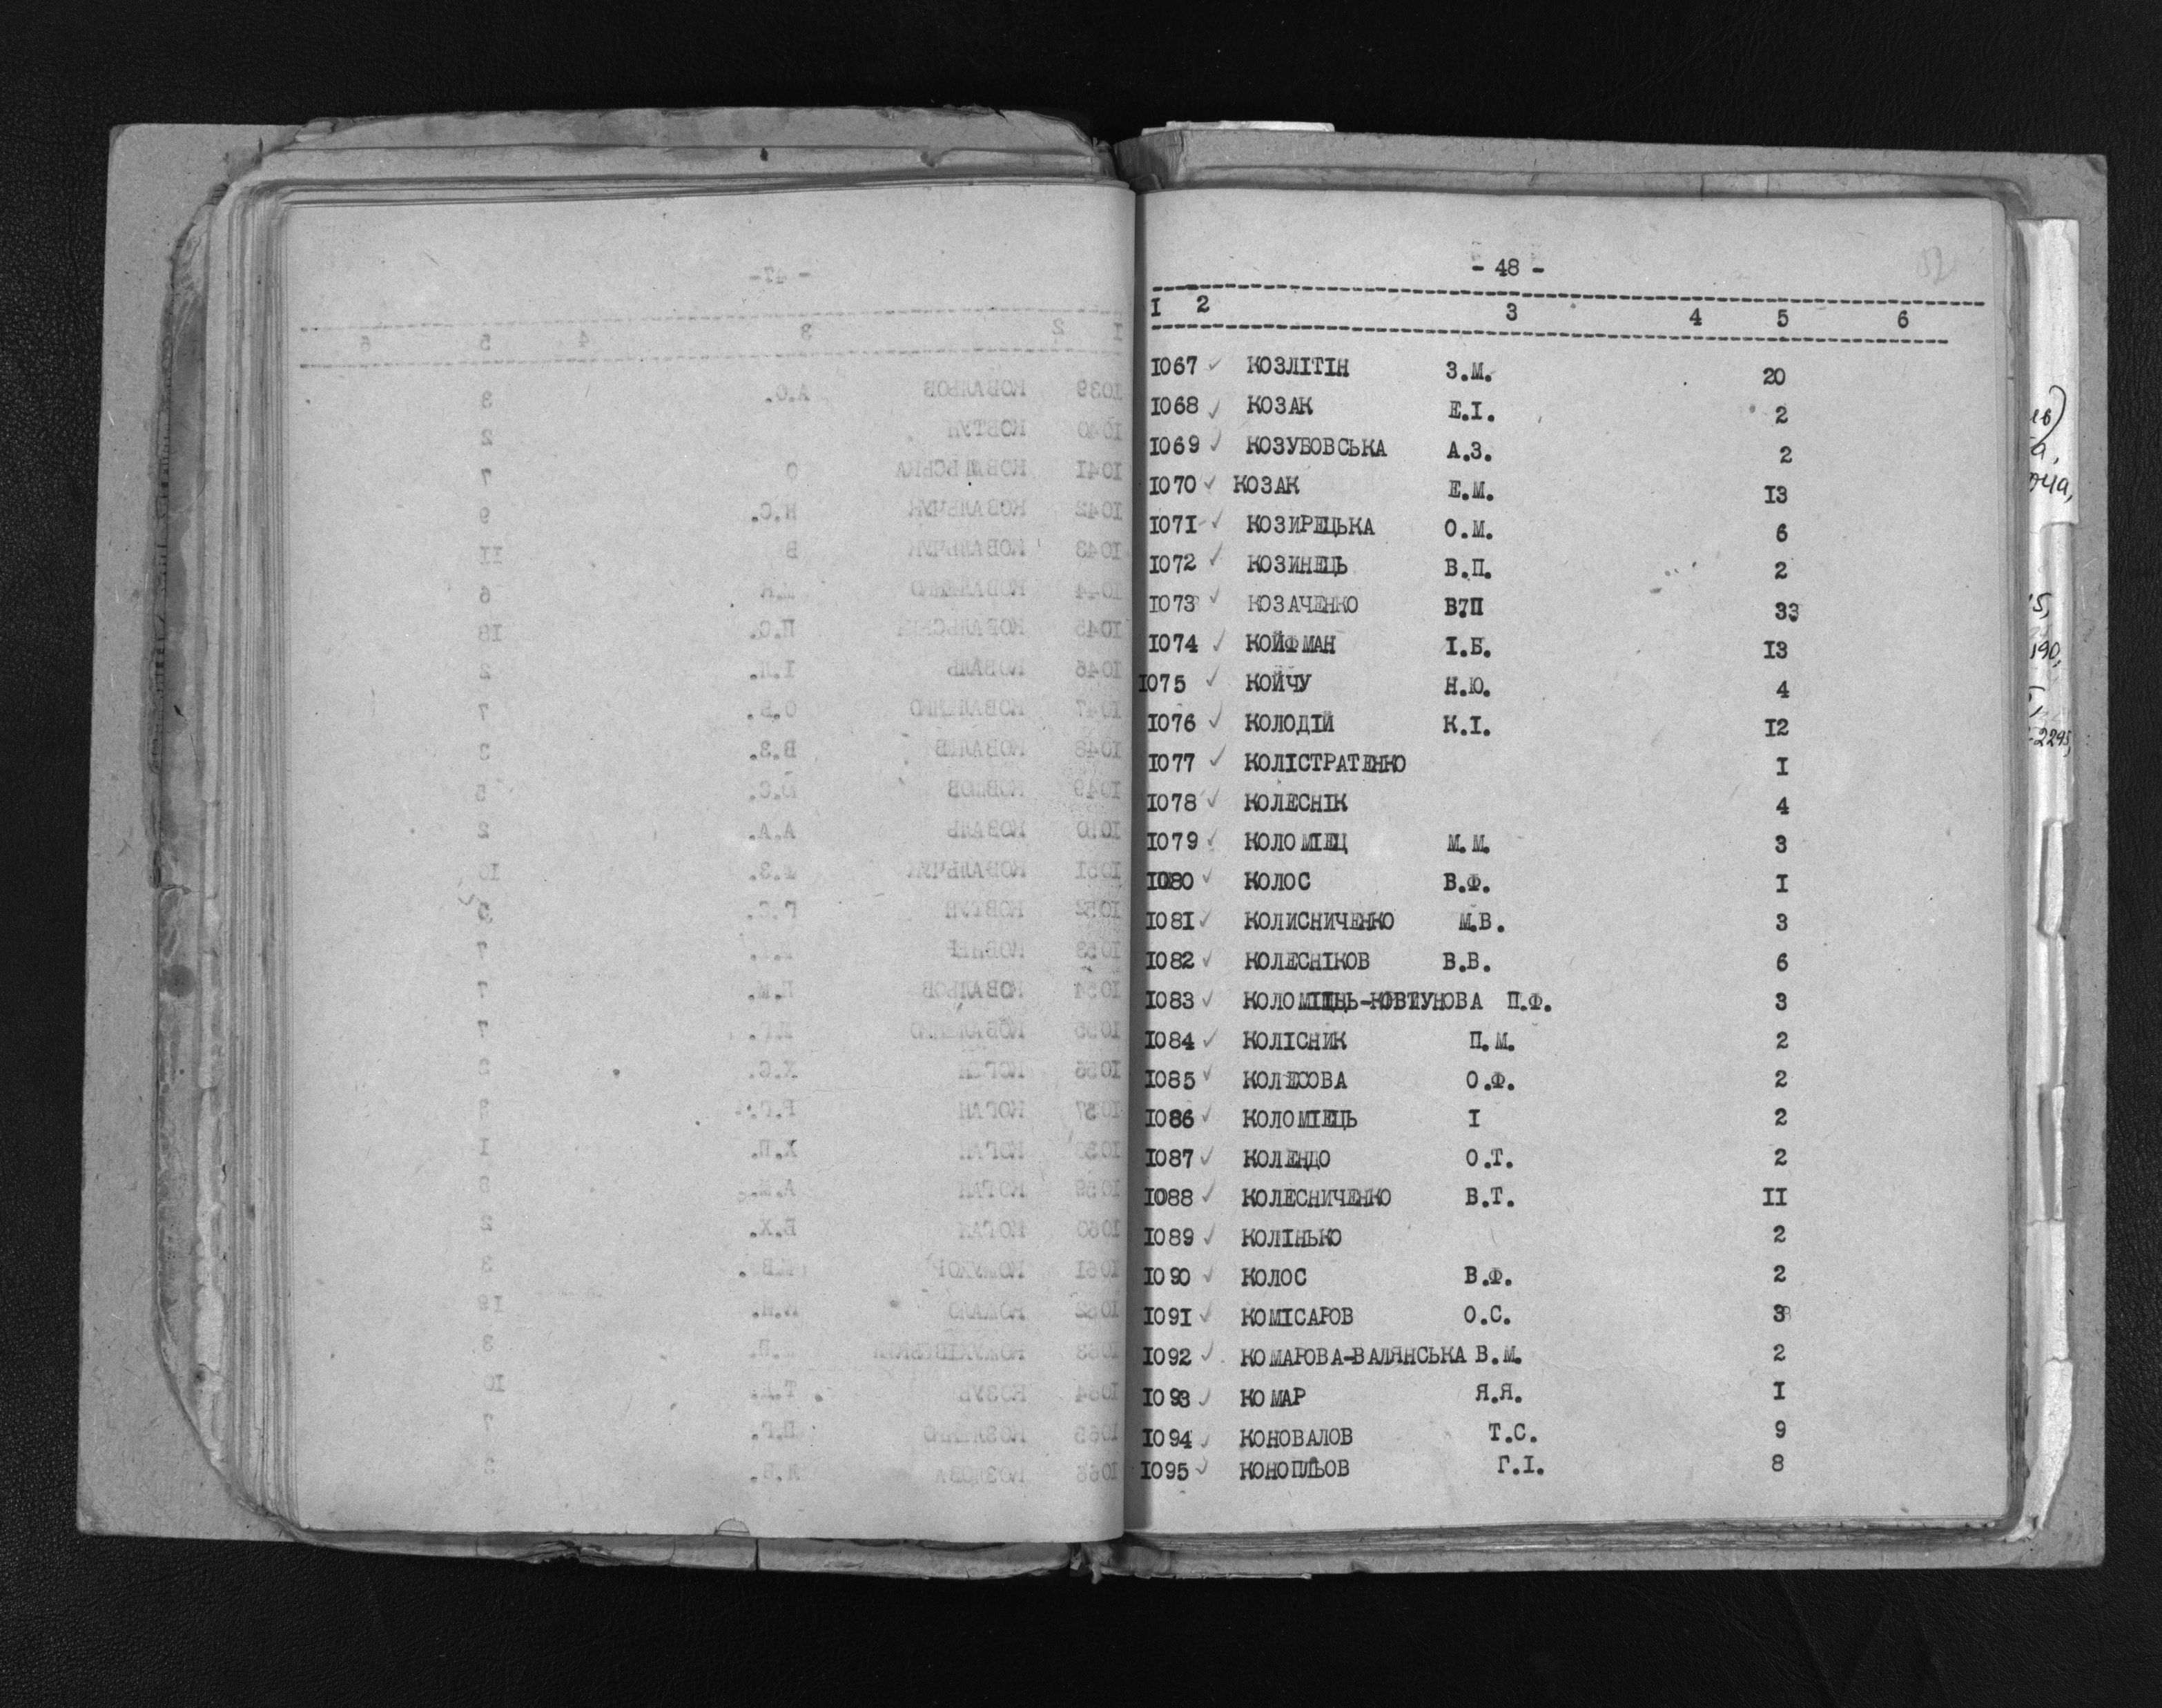 - 48 -
I 2 3 4 5 6
I067 КОЗЛІТІН З.М. 20
I068 КОЗАК Е.І. 2
I069 КОЗУБОВСЬКА А.З. 2
I070 КОЗАК Е.М. I3
I07I КОЗИРЕЦЬКА О.М. 6
I072 КОЗИНЕЦЬ В.П. 2
I073 КОЗАЧЕНКО В7П 33
I074 КОЙФМАН І.Б. I3
I075 КОЙЧУ Н.Ю. 4
I076 КОЛОДІЙ К.І. I2
I077 КОЛІСТРАТЕНКО I
I078 КОЛЕСНІК 4
I079 КОЛОМІЕЦ М.М. 3
I080 КОЛОС В.Ф. I
I08I КОЛИСНИЧЕНКО М.В. 3
I082 КОЛЕСНІКОВ В.В. 6
I083 П.Ф. 3
I084 КОЛІСНИК П.М. 2
I085 КОЛЕСОВА О.Ф. 2
I086 КОЛОМІЕЦЬ І 2
I087 КОЛЕНДО О.Т. 2
I088 КОЛЕСНИЧЕНКО В.Т. II
I089 КОЛІНЬКО 2
I090 КОЛОС В.Ф. 2
I09I КОМІСАРОВ О.С. 3
I092 КОМАРОВА-ВАЛЯНСЬКА В.М. 2
I093 КОМАР Я.Я. I
I094 КОНОВАЛОВ Т.С. 9
I095 КОНОПЛЬОВ Г.І. 8